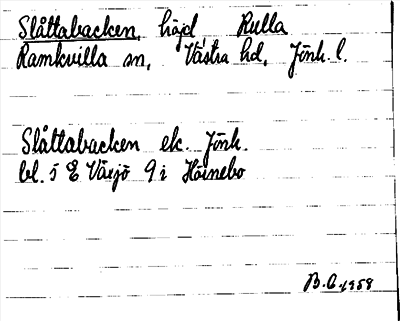 Slåttabacken, höjd Rulla
Ramkvilla sn, Västra hd, Jönk. l.
Slåttabacken ek. Jönk.
bl. 5 E Växjö 9 i Höinebo
B.A. 1958